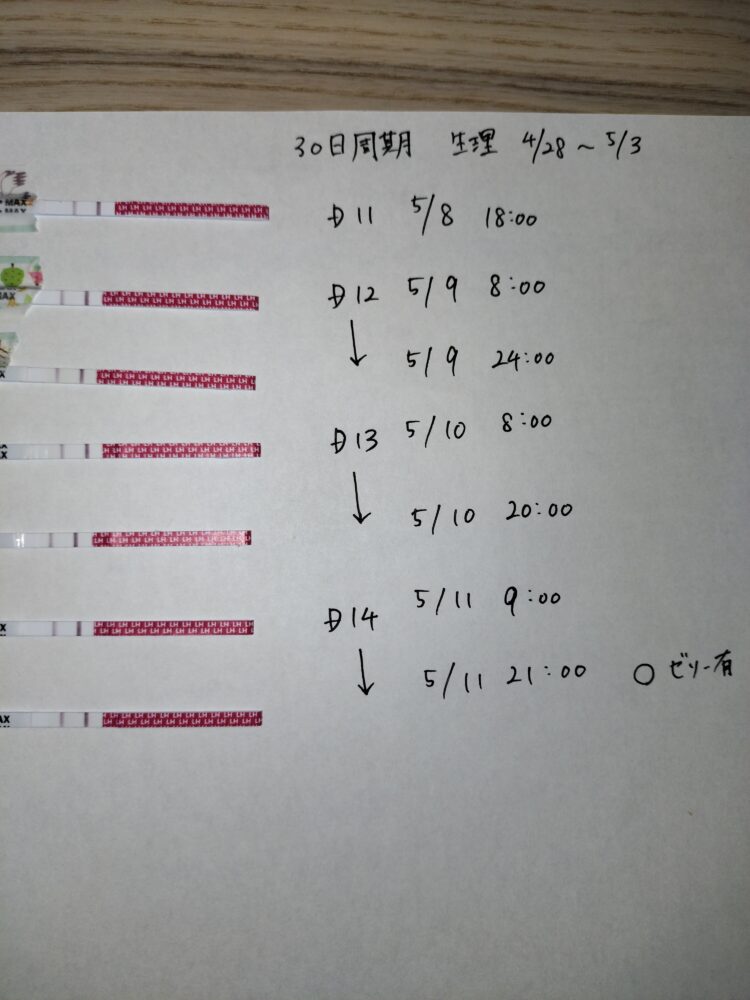 30日周期 生理 4/28～5/3
MAX
MAX
LH LH LH LH LH LH LH LH LH LH LH
D11 5/8 18:00
MAX
LH LH LH LH LH LH LH LH LH LH LH
D12 5/9 8:00
↓ 5/9 24:00
D13 5/10 8:00
↓ 5/10 20:00
D14 5/11 9:00
↓ 5/11 21:00 ○ ゼリー有
AX